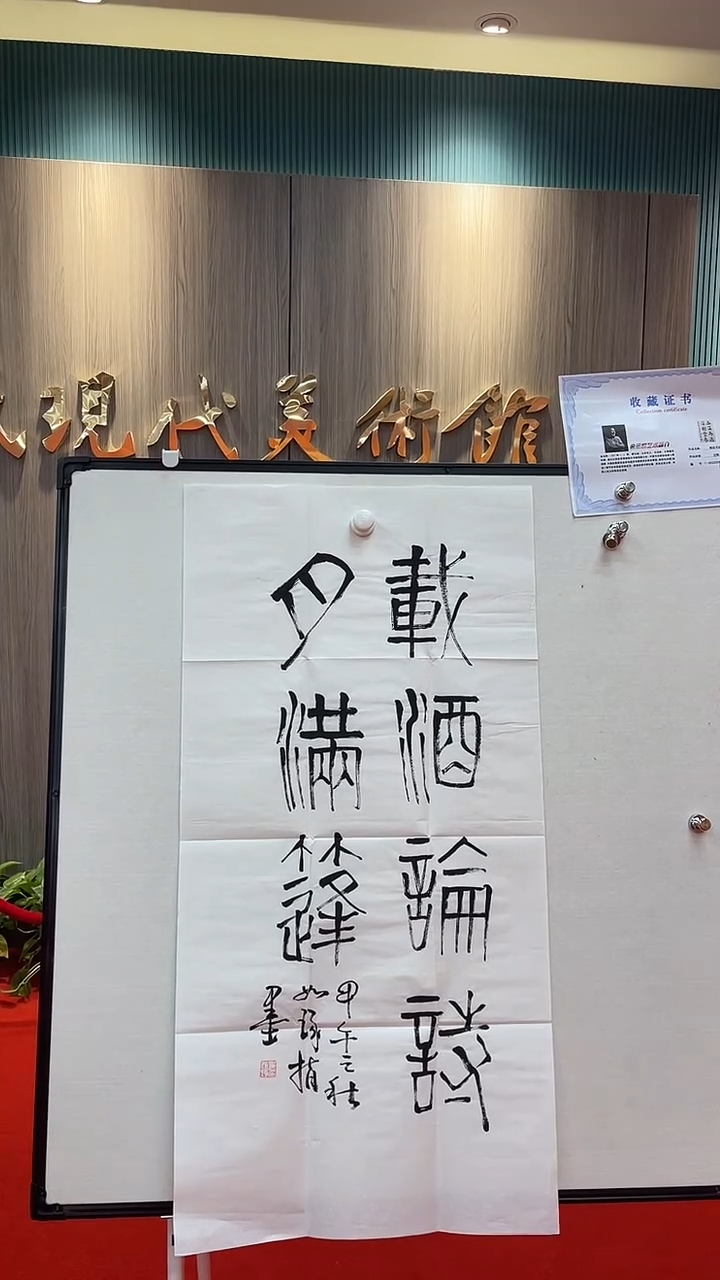 現代美術館
收藏证书
Collection certificate
載酒論詩
月滿篷
甲午之秋
如珠指
墨